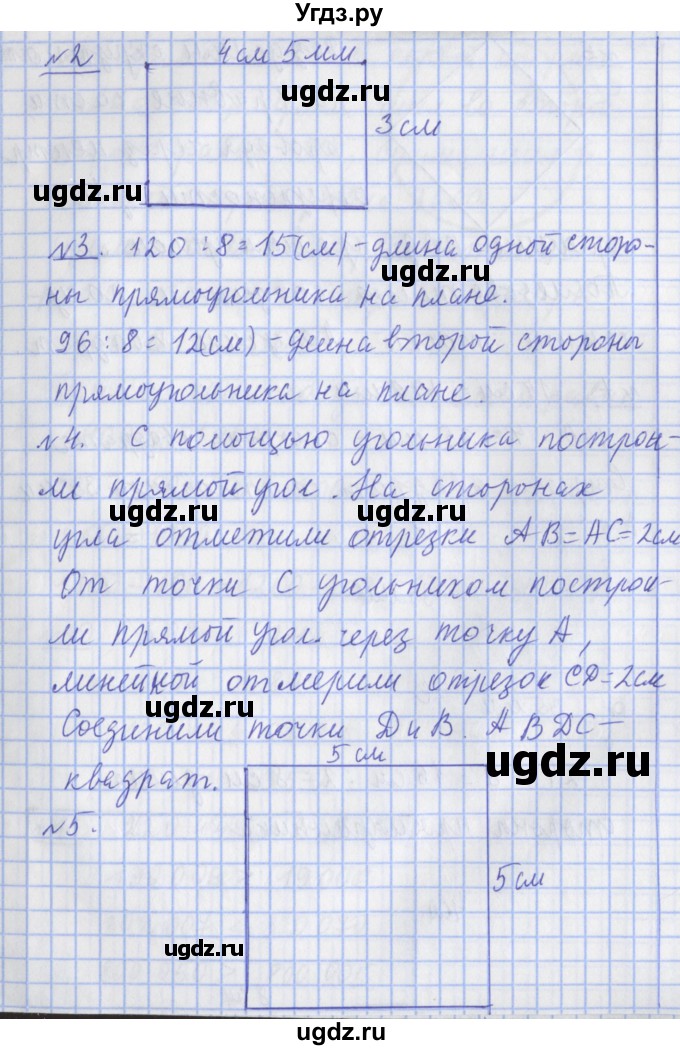 Угдз.ру
№2
4см 5мм
ugdz.ru
3 см
ugdz.ru
№3. 120 : 8 = 15(см) - длина одной сторо-
ugdz.ru
ны прямоугольника на плане.
96 : 8 = 12(см) - длина второй стороны
прямоугольника на плане.
№4. С помощью угольника построи-
ли прямой угол. На сторонах
ugdz.ru ugdz.ru
угла отметили отрезки AB=AC=2см
От точки С угольником построи-
ли прямой угол. через точку А,
линейкой отмерили отрезок CD=2см
ugdz.ru
Соединили точки D и B. ABDC —
5 см
ugdz.ru
квадрат.
№5.
5 см
ugdz.ru
ugdz.ru